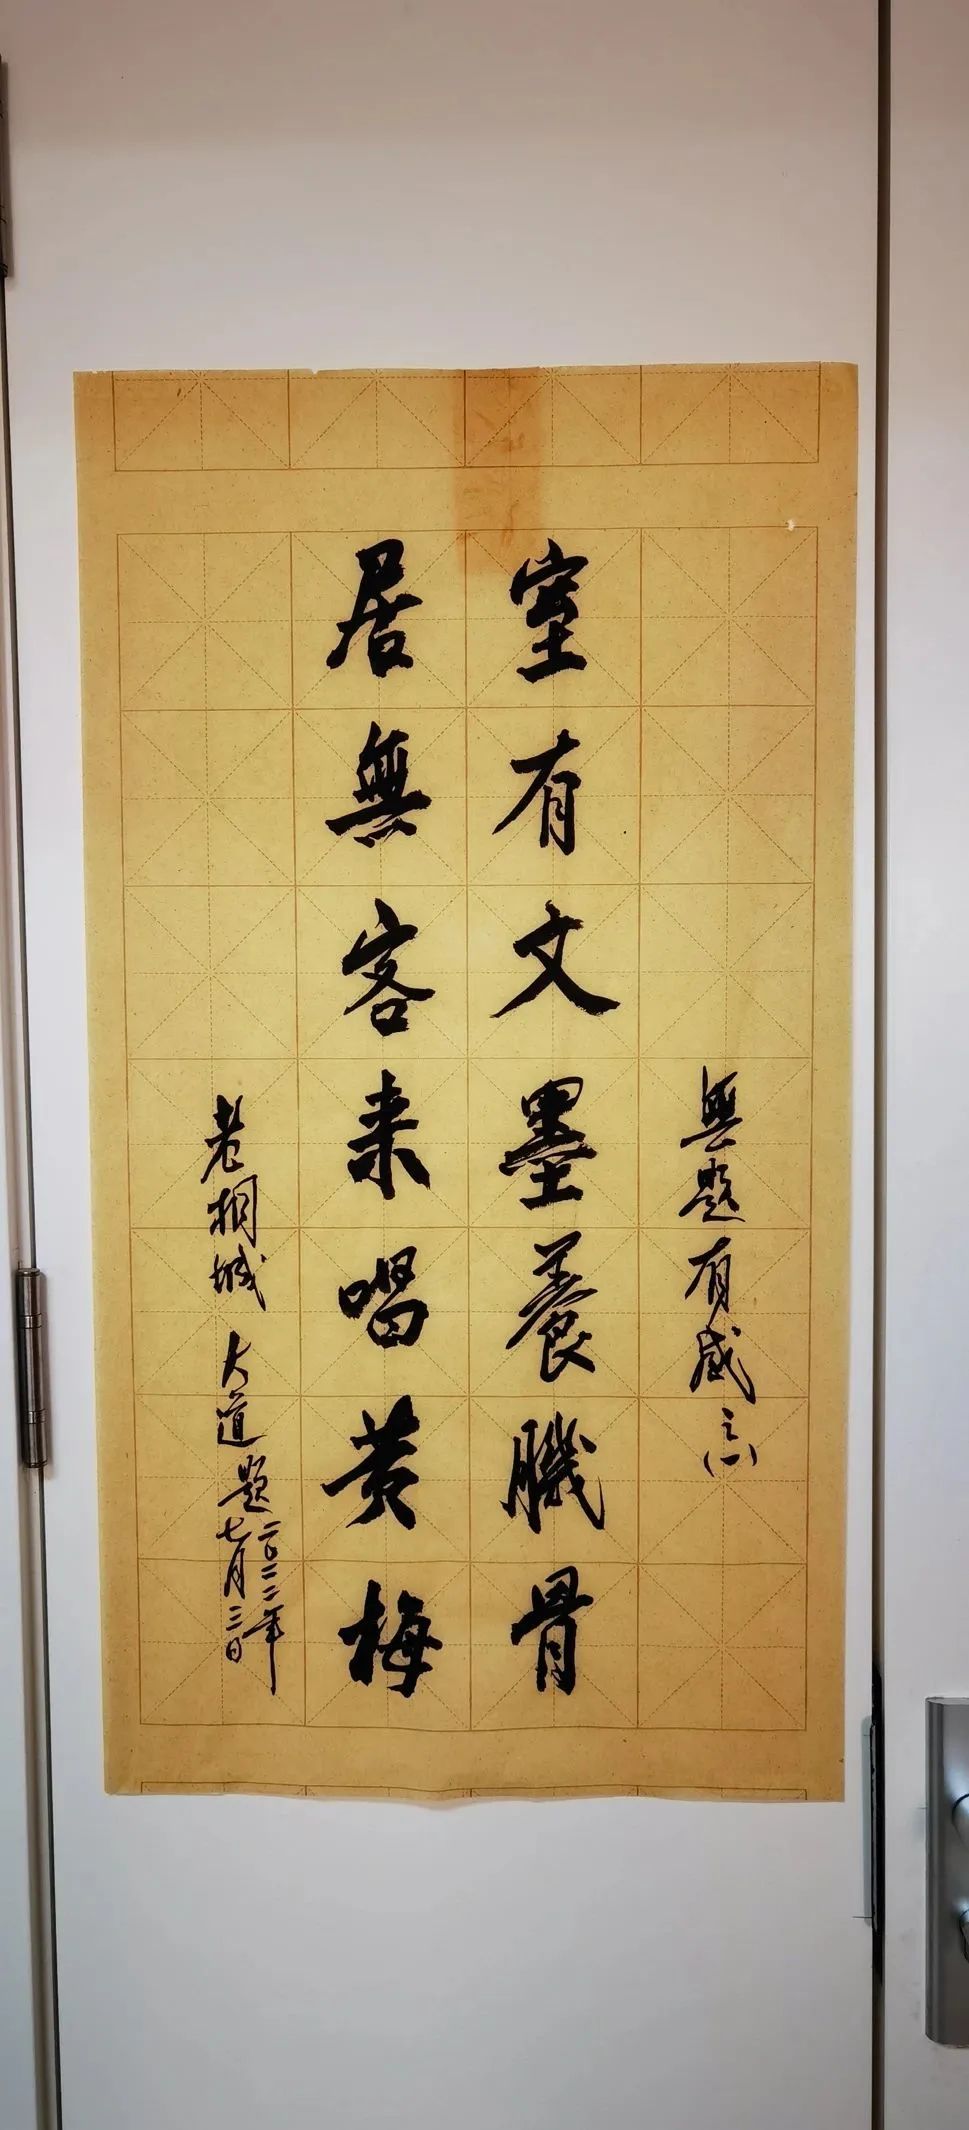 無題有感
室有文墨養𦠄骨
居無客来唱黄梅
老桐城 大道題
二〇二二年
七月三日